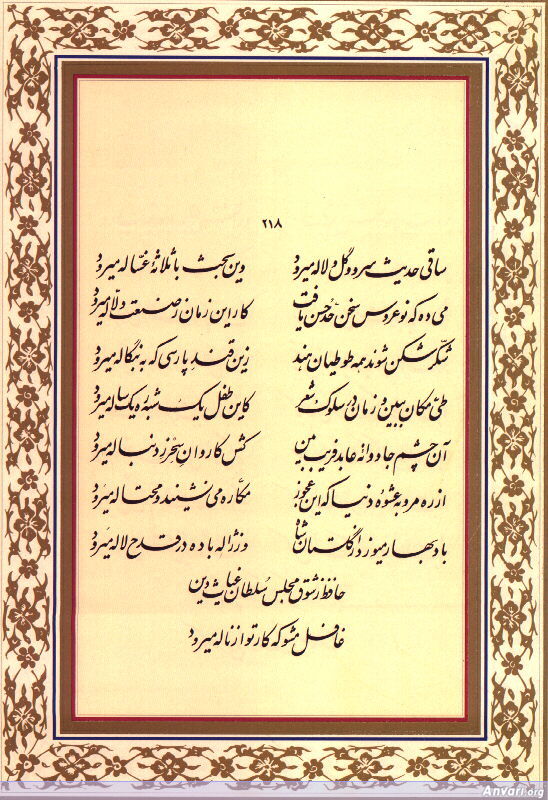 ۲۱۸
ساقی حدیث سرو و گل و لاله میرود وین بحث با ثلاثهٔ غساله میرود
می ده که نوعروس سخن حد حسن یافت کار این زمان ز صنعت دلاله میرود
شکر شکن شوند همه طوطیان هند زین قند پارسی که به بنگاله میرود
طی مکان ببین و زمان در سلوک شعر کاین طفل یک شبه ره یک ساله میرود
آن چشم جادوانهٔ عابد فریب بین کش کاروان سحر ز دنباله میرود
از ره مرو به عشوه دنیا که این عجوز مکاره می نشیند و محتاله میرود
باد بهار میوزد از گلستان شاه وز ژاله باده در قدح لاله میرود
حافظ ز شوق مجلس سلطان غیاث دین
غافل مشو که کار تو از ناله میرود
Anvari.org